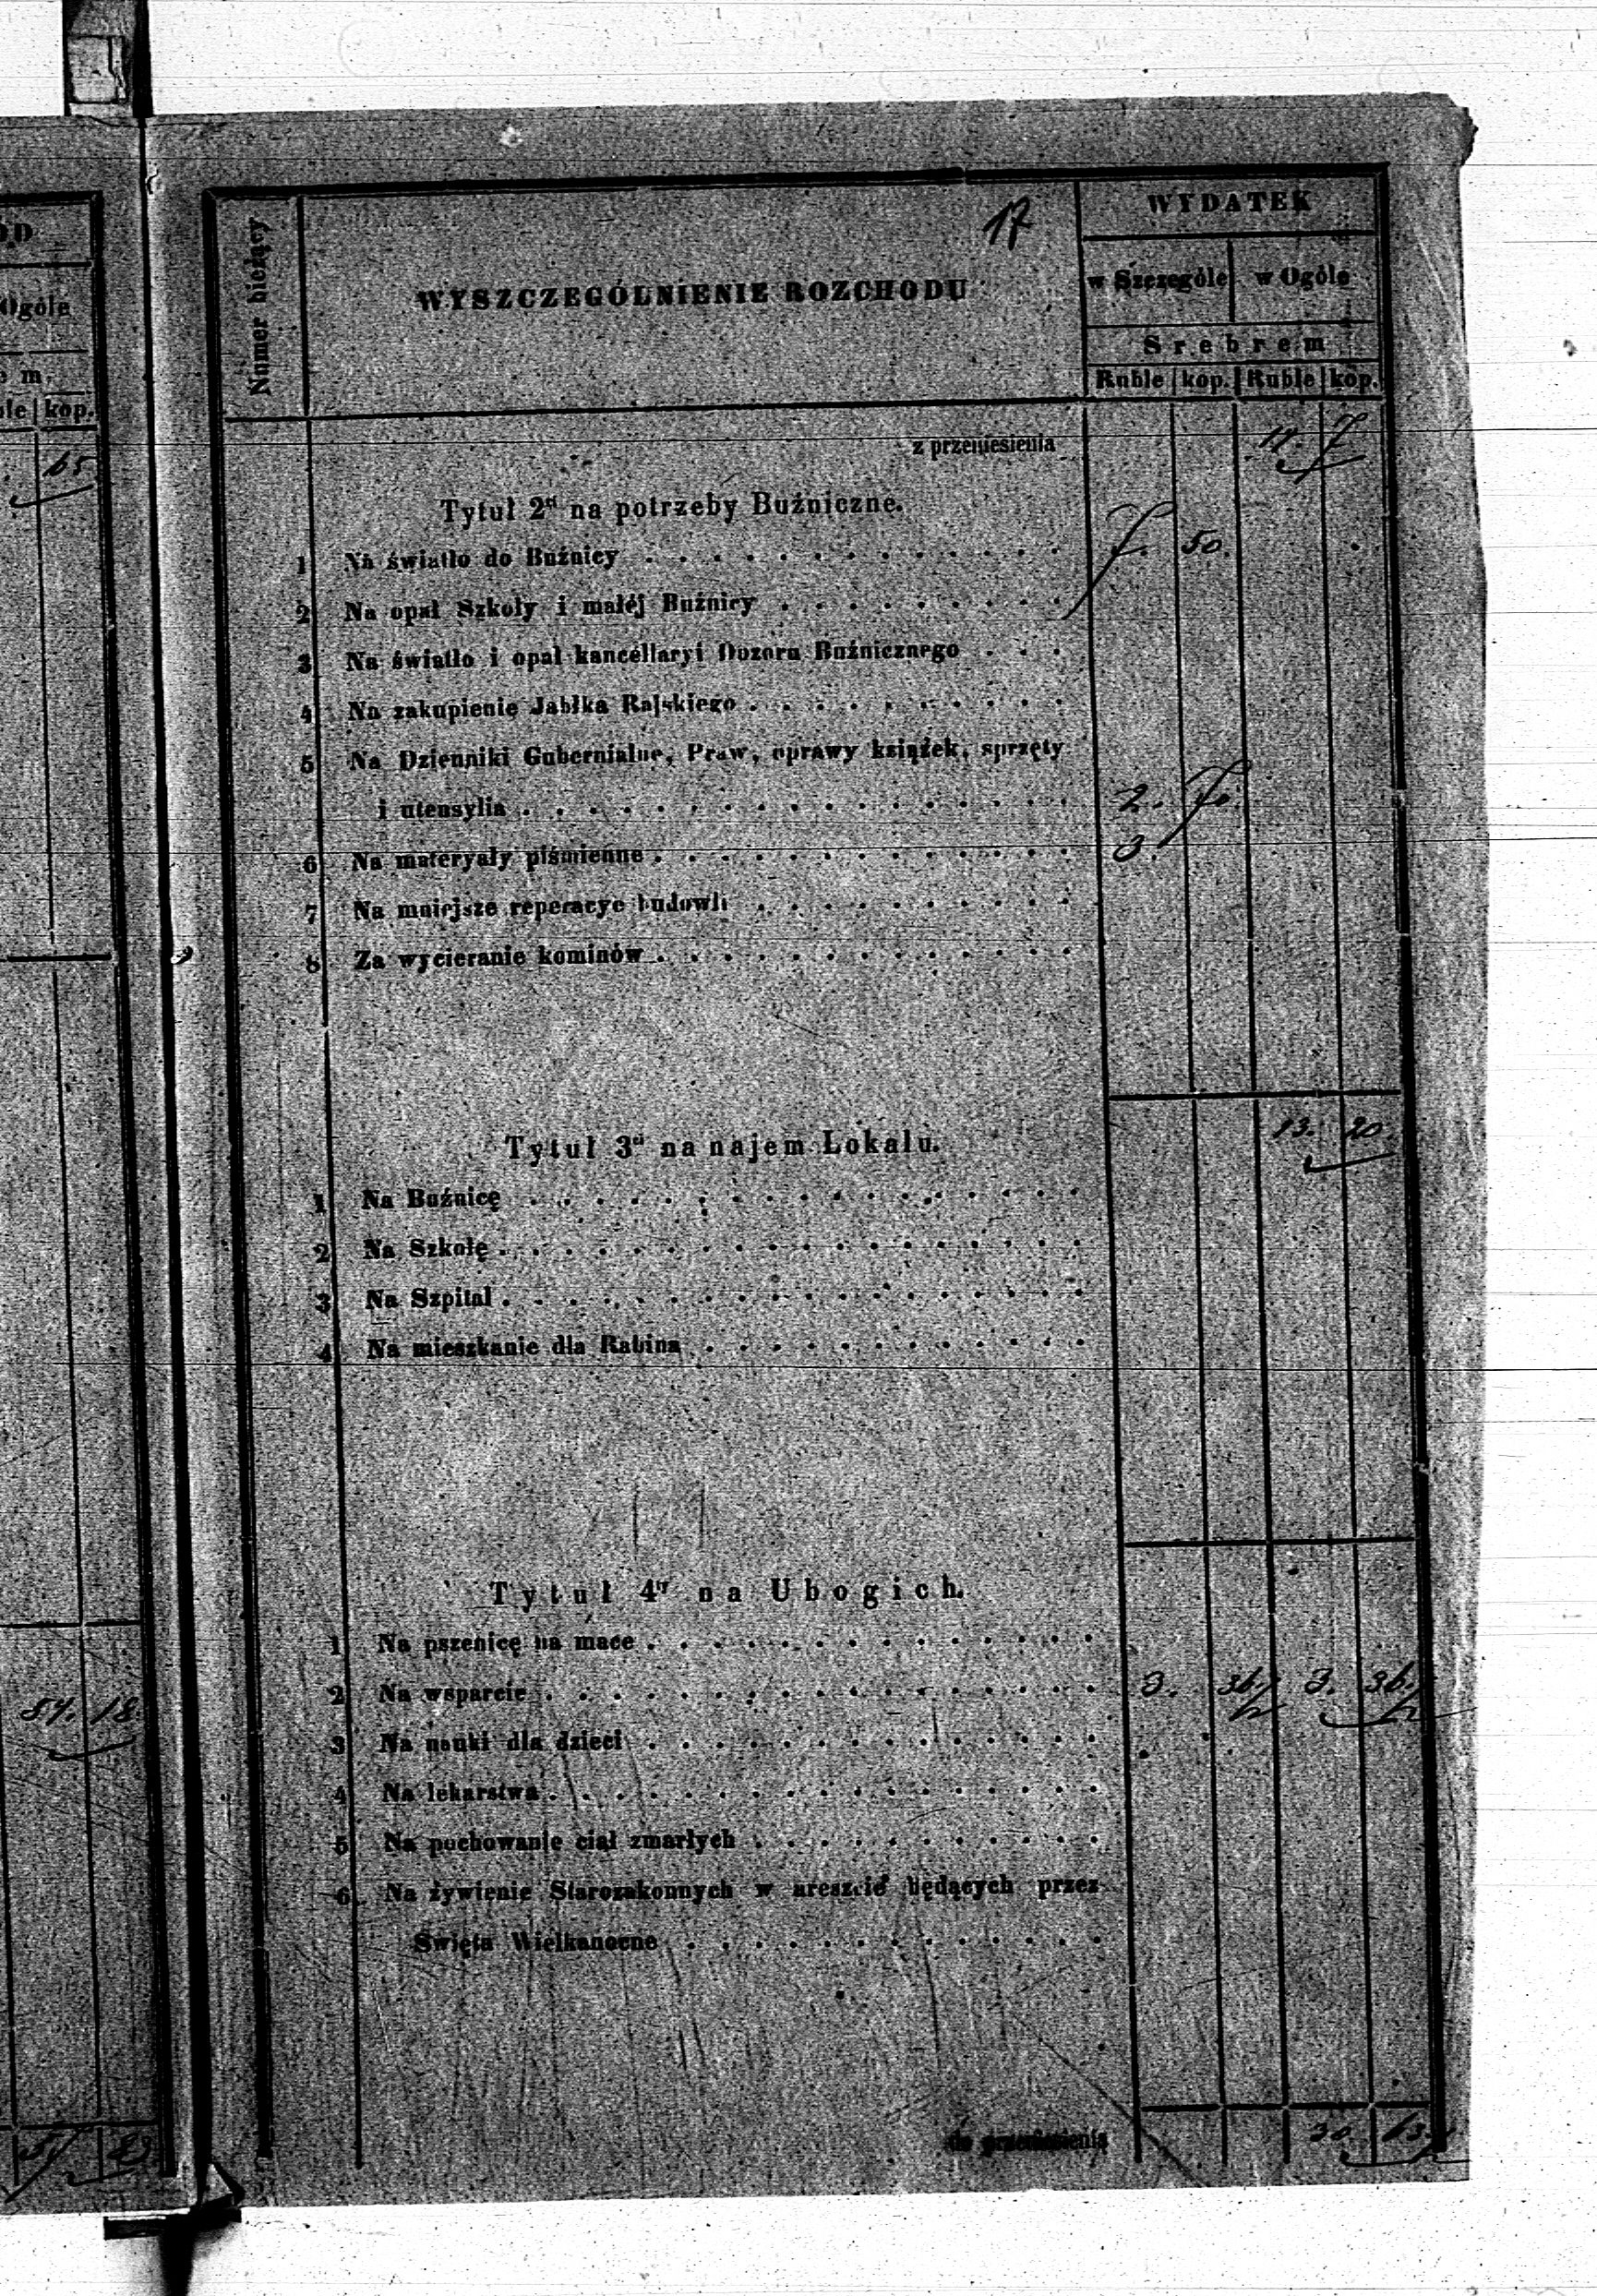 OD
Ogóle
m.
kop.
65
54. 18
83
17
Numer bieżący
WYSZCZEGÓLNIENIE ROZCHODU
WYDATEK
w Szczególe w Ogóle
Srebrem
Ruble kop. Ruble kop.
z przeniesienia 14. 7
Tytuł 2gi na potrzeby Buźniczne.
1 Na światło do Buźnicy 7. 50.
2 Na opał Szkoły i małéj Buźnicy
3 Na światło i opał kancéllaryi Dozoru Buźnicznego
4 Na zakupienie Jabłka Rajskiego
5 Na Dzienniki Gubernialne, Praw, oprawy książek, sprzęty
i utensylia 2. 70.
6 Na materyały piśmienne 3.
7 Na mniejsze reperacye budowli
8 Za wycieranie kominów
13. 20.
Tytuł 3ci na najem Lokalu.
1 Na Buźnicę
2 Na Szkołę
3 Na Szpital
4 Na mieszkanie dla Rabina
Tytuł 4ty na Ubogich.
1 Na pszenicę na mace
2 Na wsparcie 3. 36 1/2 3. 36 1/2
3 Na nauki dla dzieci
4 Na lekarstwa
5 Na pochowanie ciał zmarłych
6 Na żywienie Starozakonnych w areszcie będących przez
Święta Wielkanocne
do przeniesienia 30 63 1/2